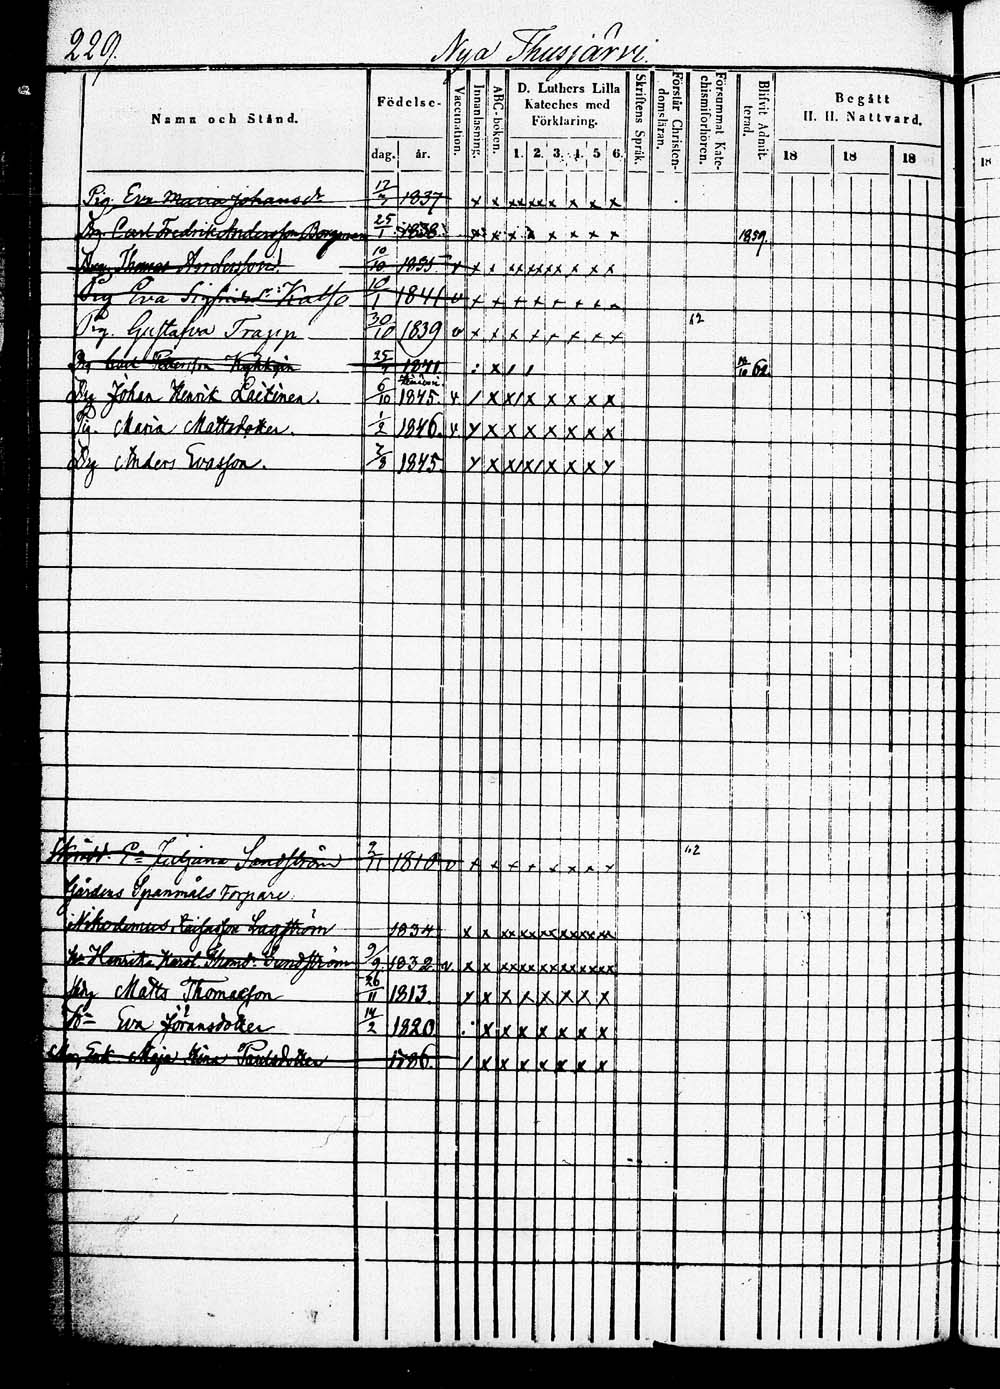 229. Nya Thusjärvi.
Namn och Stånd. Födelse- dag. år. Vaccination. Innanläsning. ABC-boken. D. Luthers Lilla Kateches med Förklaring. 1. 2. 3. 4. 5 6. Skriftens Språk. Förstår Christendomsläran. Försummat Katechismiförhören. Blifvit Admitterad. Begått H. H. Nattvard. 18 18 18
Pig. Eva Maria Johansdr 1837 x x x x x x x x x x
Drg. Carl Fredrik Andersson Bergman 25/1 1838 x x x x x x x x x 1859.
Drg. Thomas Andersson 10/10 1835 v x x x x x x x x x x
Pig Eva Sigfridsdr Katso 10/1 1841 v x x x x x x x x
Pig. Gustafva Trapp 30/10 1839 v x x x x x x x x 62
Dg Carl Petersson 25/7 1841 62
Dg Johan Henrik Laitinen. 6/10 1845 v / x x / x x x x x x
Pig. Maria Mattsdotter. 1/2 1846. v x x x x x x x x x
Dg Anders Evasson. 7/8 1845 x x x / x / x x x x
Juliana Sandström 2/11 1810 v x x x x x x x x 62
Gårdens Spanmåls Torpare.
Nikodemus Lagström 1834 x x x x x x x x x x x x
Hu Henrika Karol. Thomdr Sundström 9/9 1832 v. x x x x x x x x x x x x
Matts Thomasson 26/11 1813 x x x x x x x x
Hu Eva Jöransdotter 14/2 1820 x x x x x x x
Enk. Maja Stina Paulsdotter 1786. / x x x x x x x